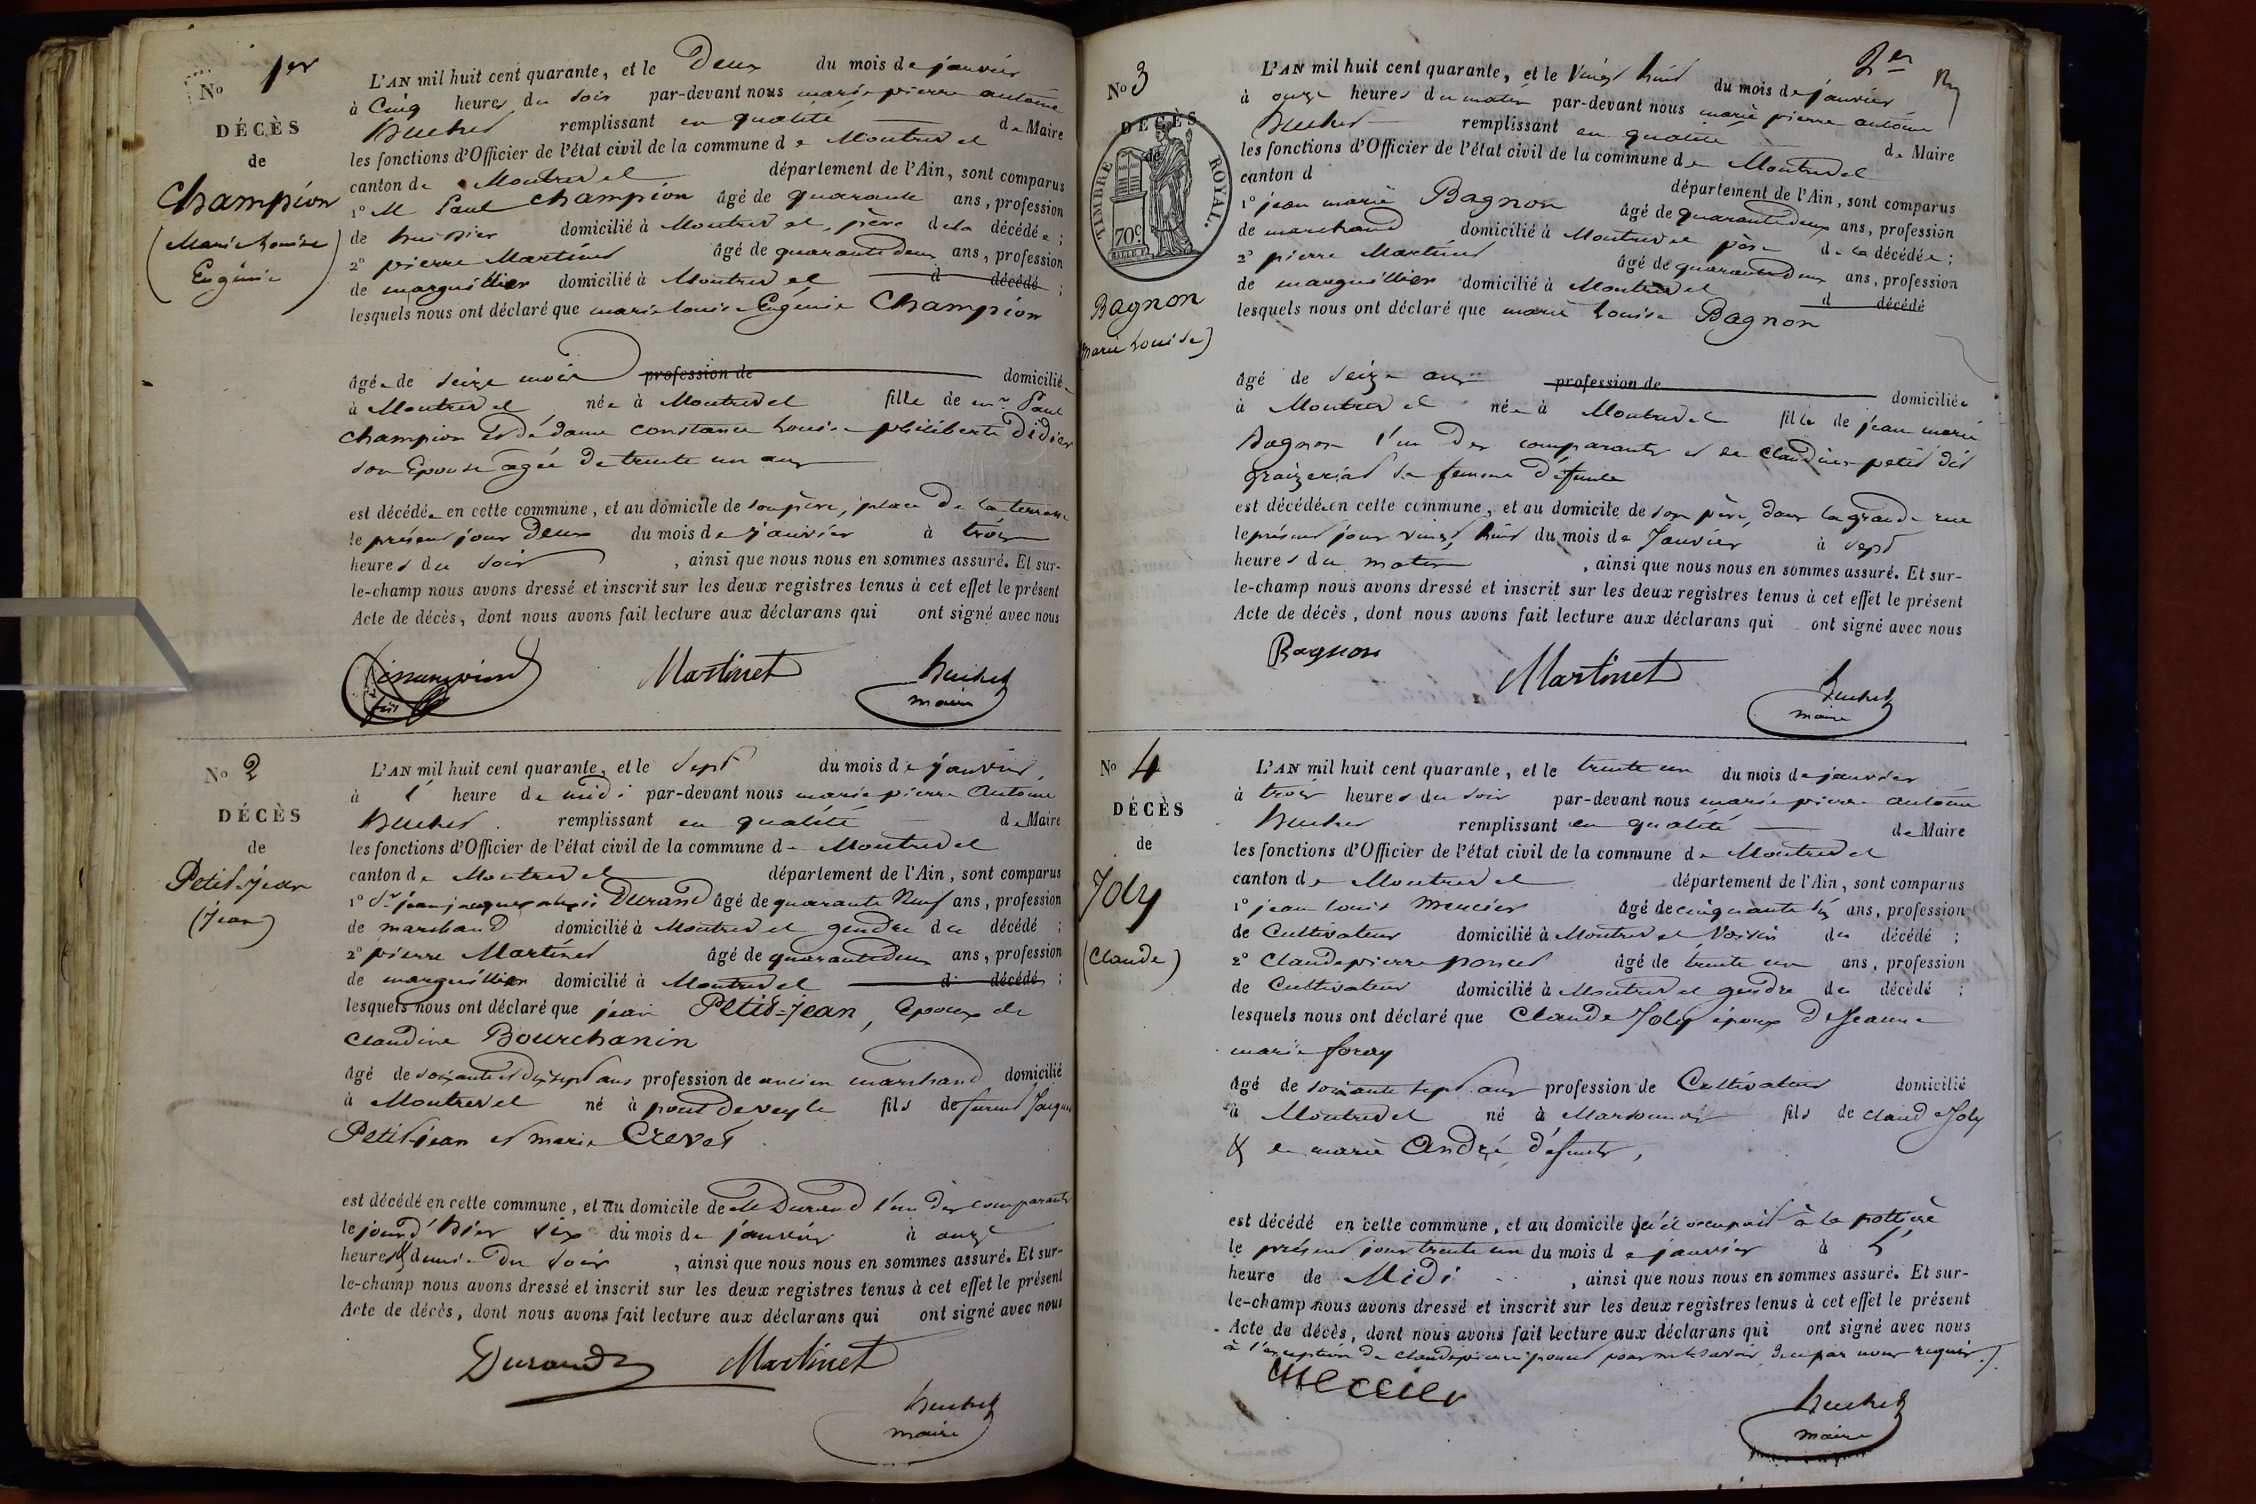 No 1er
DÉCÈS
de
Champion
(Marie Louise
Eugénie)
L'AN mil huit cent quarante, et le Deux du mois de janvier
à Cinq heures du soir par-devant nous marie pierre antoine
huchet remplissant en qualité de Maire
les fonctions d'Officier de l'état civil de la commune de Montrevel
canton de Montrevel département de l'Ain, sont comparus
1° M Paul Champion âgé de quarante ans, profession
de huissier domicilié à Montrevel, père de la décédée;
2° pierre Martinet âgé de quarante deux ans, profession
de marguillier domicilié à Montrevel d décédé;
lesquels nous ont déclaré que marie louise Eugénie Champion
âgée de seize mois profession de domiciliée
à Montrevel née à Montrevel fille de mr Paul
Champion et de dame constance Louise philiberte Didier
son Epouse agée de trente un ans
est décédée en cette commune, et au domicile de son père, place de la terrasse
le présent jour Deux du mois de janvier à trois
heures du soir, ainsi que nous nous en sommes assuré. Et sur-
le-champ nous avons dressé et inscrit sur les deux registres tenus à cet effet le présent
Acte de décès, dont nous avons fait lecture aux déclarans qui ont signé avec nous
Martinet huchet
maire
No 2
DÉCÈS
de
Petit-Jean
(Jean)
L'AN mil huit cent quarante, et le sept du mois de janvier,
à 1 heure de midi par-devant nous marie pierre Antoine
huchet remplissant en qualité de Maire
les fonctions d'Officier de l'état civil de la commune de Montrevel
canton de Montrevel département de l'Ain, sont comparus
1° Sr jean jacques alexis Durand âgé de quarante Neuf ans, profession
de marchand domicilié à Montrevel gendre du décédé;
2° pierre Martinet âgé de quarante deux ans, profession
de marguillier domicilié à Montrevel d décédé;
lesquels nous ont déclaré que jean Petit-Jean, Epoux de
Claudine Bourchanin
âgé de soixante et dix sept ans profession de ancien marchand domicilié
à Montrevel né à pont de veyle fils de furent Jacques
Petit-jean et marie Crevat
est décédé en cette commune, et au domicile de M Durand l'un des comparants
le jour d'hier six du mois de janvier à onze
heures & demie du soir, ainsi que nous nous en sommes assuré. Et sur-
le-champ nous avons dressé et inscrit sur les deux registres tenus à cet effet le présent
Acte de décès, dont nous avons fait lecture aux déclarans qui ont signé avec nous
Durand Martinet
huchet
maire
2er
No 3
DÉCÈS
de
TIMBRE ROYAL.
70c
Bagnon
(Marie Louise)
L'AN mil huit cent quarante, et le Vingt huit du mois de janvier
à onze heures du matin par-devant nous marie pierre antoine
huchet remplissant en qualité de Maire
les fonctions d'Officier de l'état civil de la commune de Montrevel
canton d département de l'Ain, sont comparus
1° jean marie Bagnon âgé de quarante deux ans, profession
de marchand domicilié à Montrevel père de la décédée;
2° pierre Martinet âgé de quarante deux ans, profession
de marguillier domicilié à Montrevel d décédé
lesquels nous ont déclaré que marie Louise Bagnon
âgé de seize ans profession de domiciliée
à Montrevel née à Montrevel fille de jean marie
Bagnon l'un des comparants et de Claudine petit dit
graizeriat sa femme défunte
est décédée en cette commune, et au domicile de son père, dans la grande rue
le présent jour vingt huit du mois de Janvier à sept
heures du matin, ainsi que nous nous en sommes assuré. Et sur-
le-champ nous avons dressé et inscrit sur les deux registres tenus à cet effet le présent
Acte de décès, dont nous avons fait lecture aux déclarans qui ont signé avec nous
Bagnon Martinet huchet
maire
No 4
DÉCÈS
de
Joly
(Claude)
L'AN mil huit cent quarante, et le trente un du mois de janvier
à trois heures du soir par-devant nous marie pierre antoine
huchet remplissant en qualité de Maire
les fonctions d'Officier de l'état civil de la commune de Montrevel
canton de Montrevel département de l'Ain, sont comparus
1° jean louis Mercier âgé de cinquante six ans, profession
de Cultivateur domicilié à Montrevel Voisin du décédé;
2° Claude pierre poncet âgé de trente un ans, profession
de Cultivateur domicilié à Montrevel gendre du décédé;
lesquels nous ont déclaré que Claude Joly époux de Jeanne
marie foray
âgé de soixante sept ans profession de Cultivateur domicilié
à Montrevel né à Marsonnas fils de claude Joly
& de marie André défunts,
est décédé en cette commune, et au domicile qu'il occupait à la pottière
le présent jour trente un du mois de janvier à 1
heure de Midi, ainsi que nous nous en sommes assuré. Et sur-
le-champ nous avons dressé et inscrit sur les deux registres tenus à cet effet le présent
Acte de décès, dont nous avons fait lecture aux déclarans qui ont signé avec nous
à l'exception de claude pierre poncet pour ne le savoir, de ce par nous requis.
Mercier
huchet
maire